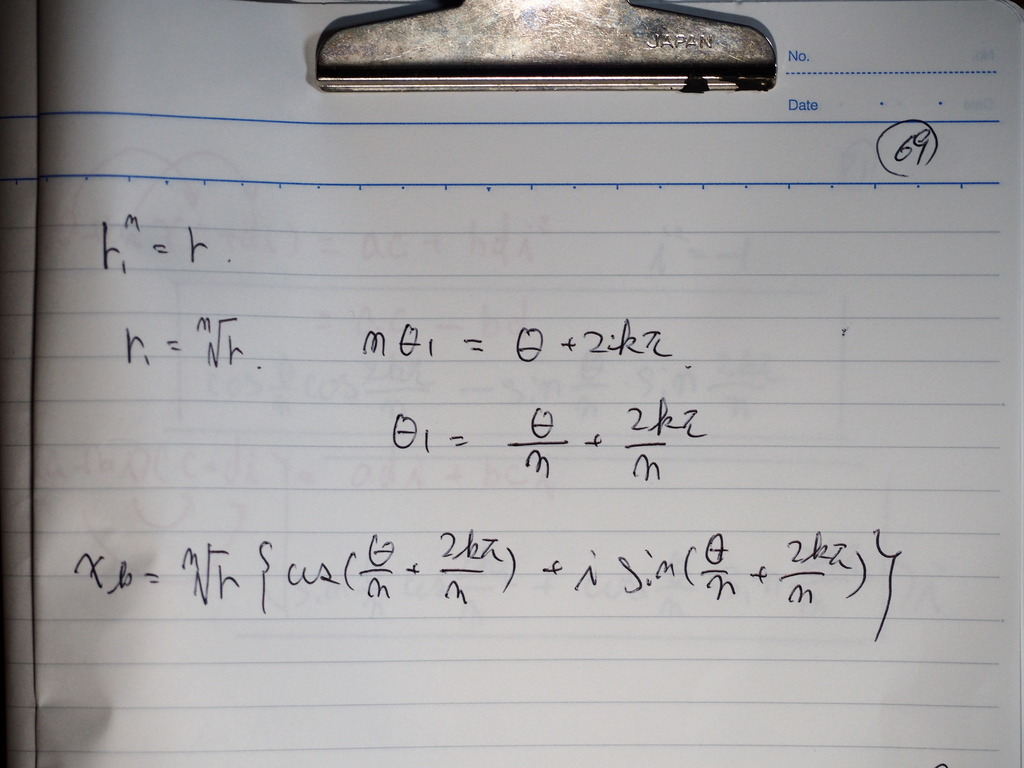 JAPAN
No.
Date
69
r₁ⁿ = r.
r₁ = ⁿ√r. nθ₁ = θ + 2kπ
θ₁ = θ/n + 2kπ/n
xₖ = ⁿ√r { cos(θ/n + 2kπ/n) + i sin(θ/n + 2kπ/n) }